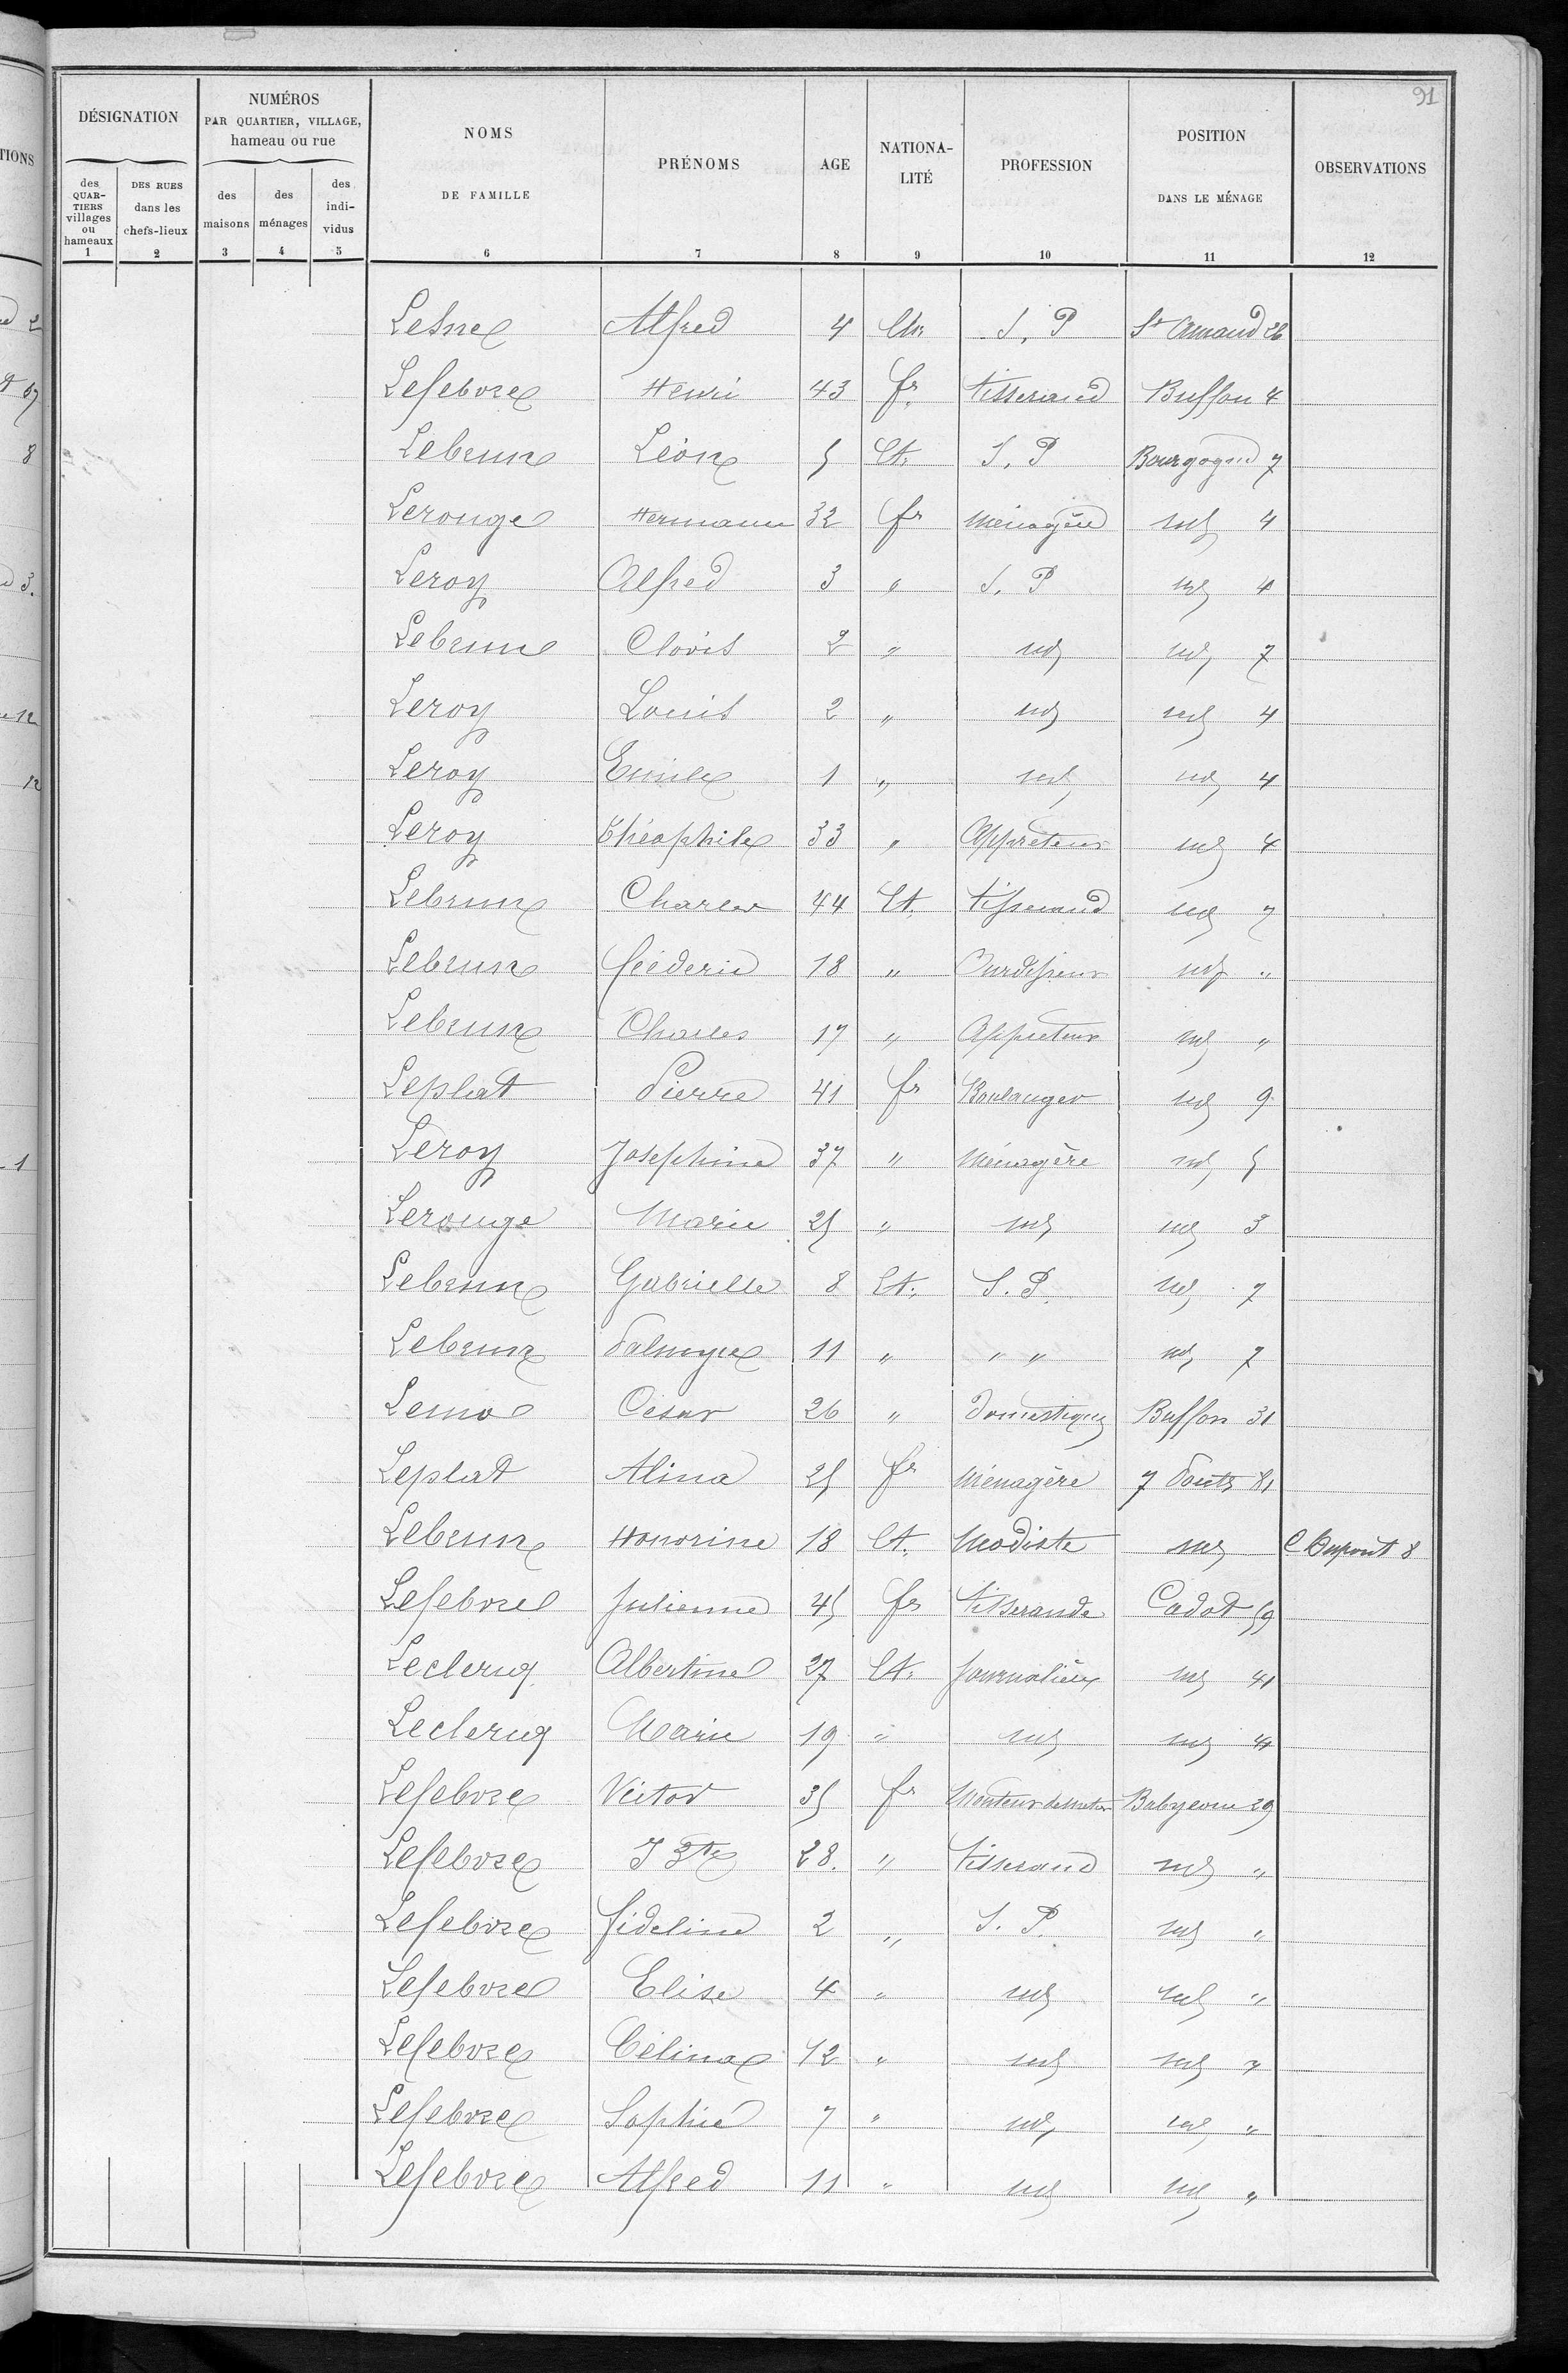 91
DÉSIGNATION NUMÉROS PAR QUARTIER, VILLAGE, hameau ou rue NOMS DE FAMILLE PRÉNOMS AGE NATIONALITÉ PROFESSION POSITION DANS LE MÉNAGE OBSERVATIONS
des QUARTIERS villages ou hameaux DES RUES dans les chefs-lieux des maisons des ménages des individus
1 2 3 4 5 6 7 8 9 10 11 12
Lesne Alfred 4 S. P St Amand 26
Lefebvre Henri 43 fr tisserand Buffon 4
Lebrun Léon 5 Et. S. P Bourgogne 7
Lerouge Hermann 32 fr Ménagère id 4
Leroy Alfred 3 " S. P id 4
Lebrun Clovis 2 " id id 7
Leroy Louis 2 " id id 4
Leroy Emile 1 " id id 4
Leroy Théophile 33 " Appreteur id 4
Lebrun Charles 44 Et. tisserand id 7
Lebrun fréderic 18 " Ourdisseur id "
Lebrun Charles 17 " Appreteur id "
Leplat Pierre 41 fr Boulanger id 9
Leroy Josephine 37 " Ménagère id 5
Lerouge Marie 25 " id id 3
Lebrun Gabrielle 8 Et. S. P. id 7
Lebrun Palmyre 11 " " " id 7
Lemo César 26 " Domestique Buffon 31
Leplat Alina 25 fr Ménagère 7 Ponts 81
Lebrun Honorine 18 Et. Modiste id C Dupont 8
Lefebvre Julienne 45 fr tisserande Cadot 59
Leclercq Albertine 27 Et. Journalière id 41
Leclercq Marie 19 " id id 41
Lefebvre Victor 35 fr Babylone 29
Lefebvre J Bte 28 " tisserand id "
Lefebvre fideline 2 " S. P. id "
Lefebvre Elise 4 " id id "
Lefebvre Célina 12 " id id "
Lefebvre Sophie 7 " id id "
Lefebvre Alfred 11 " id id "